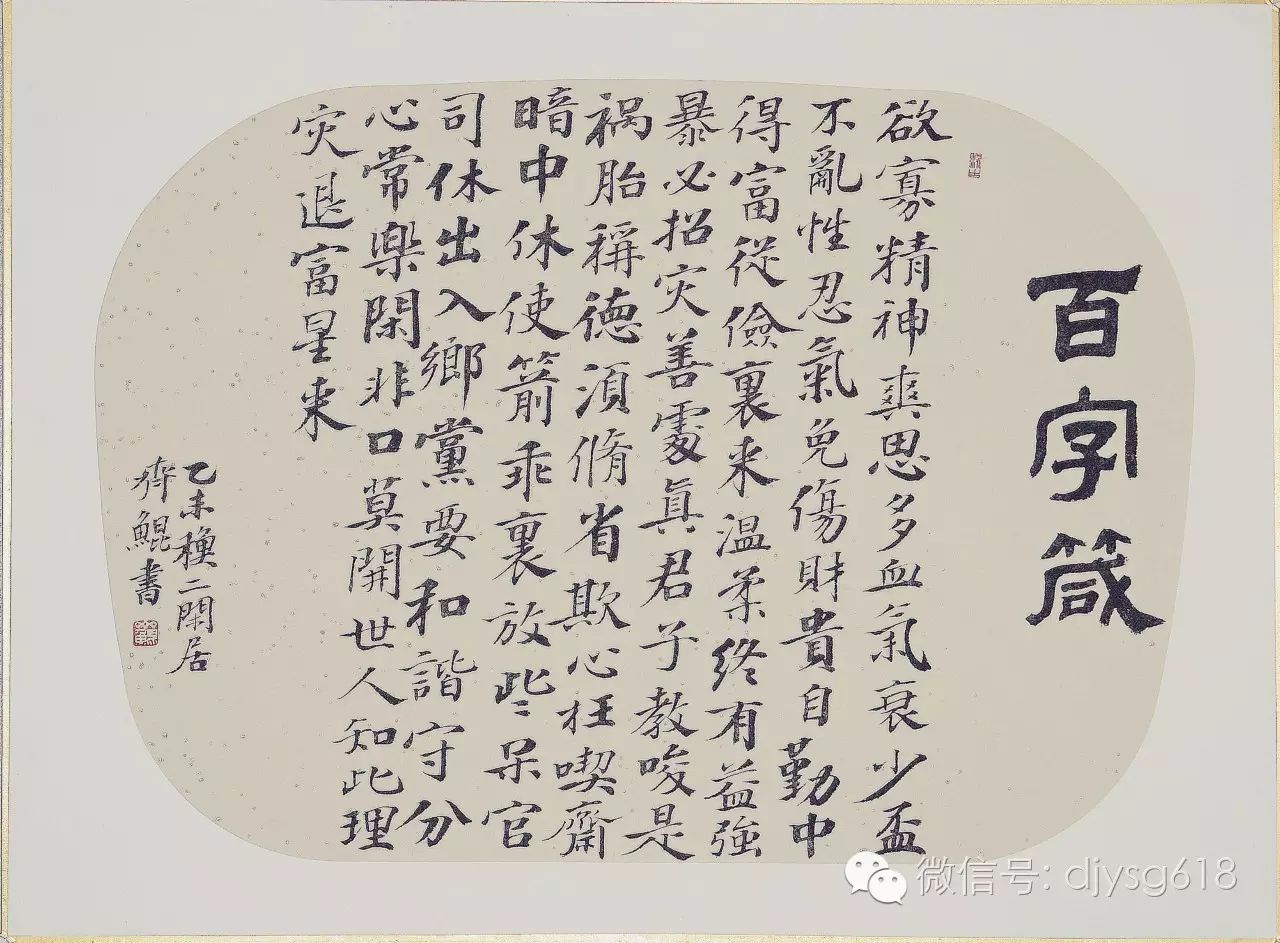 百字箴
欲寡精神爽思多血氣衰少盃
不亂性忍氣免傷財貴自勤中
得富從儉裏来温柔終有益強
暴必招灾善處眞君子教唆是
祸胎稱德須脩省欺心枉喫齋
暗中休使箭乖裏放些呆官
司休出入鄉黨要和諧守分
心常樂閑非口莫開世人知此理
灾退富星来
乙未穐二閑居
齊鯤書
微信号: djysg618